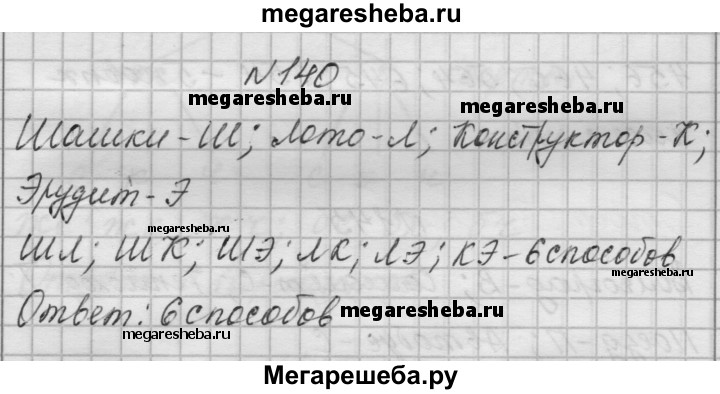 megaresheba.ru
N 140
megaresheba.ru
megaresheba.ru
Шашки-Ш; Лото-Л; Конструктор-К;
Эрудит-Э
megaresheba.ru
ШЛ; ШК; ШЭ; ЛК; ЛЭ; КЭ-6способов
megaresheba.ru
Ответ: 6способов
megaresheba.ru
megaresheba.ru
Мегарешеба.ру